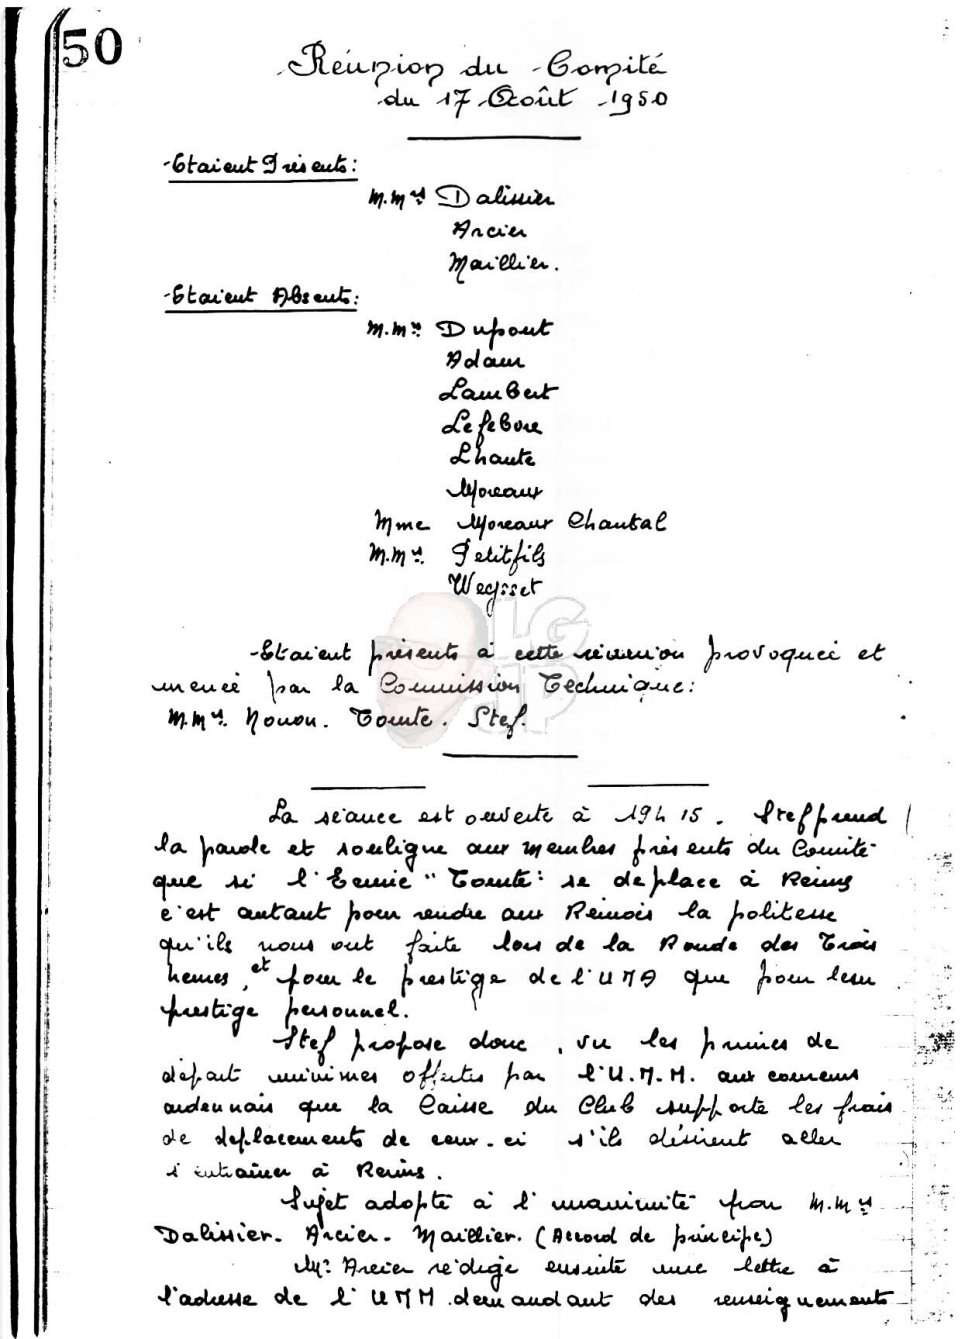 50
Réunion du Comité
du 17 Août 1950
Etaient Présents:
M.Mrs Dalissier
Arcier
Maillier.
Etaient Absents:
M.Mrs Dupont
Adam
Lambert
Lefebvre
Lhaute
Moreaux
Mme Moreaux Chantal
M.Mrs Petitfils
Weysset
LG
JP
Etaient présents à cette réunion provoquée et
menée par la Commission Technique:
M.Mrs Nonon. Tomte. Stef.
La séance est ouverte à 19h15. Stef prend
la parole et souligne aux membres présents du Comité
que si l'Ecurie "Tomte" se déplace à Reims
c'est autant pour rendre aux Rémois la politesse
qu'ils nous ont faite lors de la Ronde des Trois
heures, et pour le prestige de l'UMA que pour leur
prestige personnel.
Stef propose donc, vu les primes de
départ minimes offertes par l'U.M.M. aux coureurs
ardennais que la Caisse du Club supporte les frais
de déplacements de ceux-ci s'ils désirent aller
s'entraîner à Reims.
Sujet adopté à l'unanimité par M.Mrs
Dalissier. Arcier. Maillier. (Accord de principe)
Mr Arcier rédige ensuite une lettre à
l'adresse de l'UMM demandant des renseignements